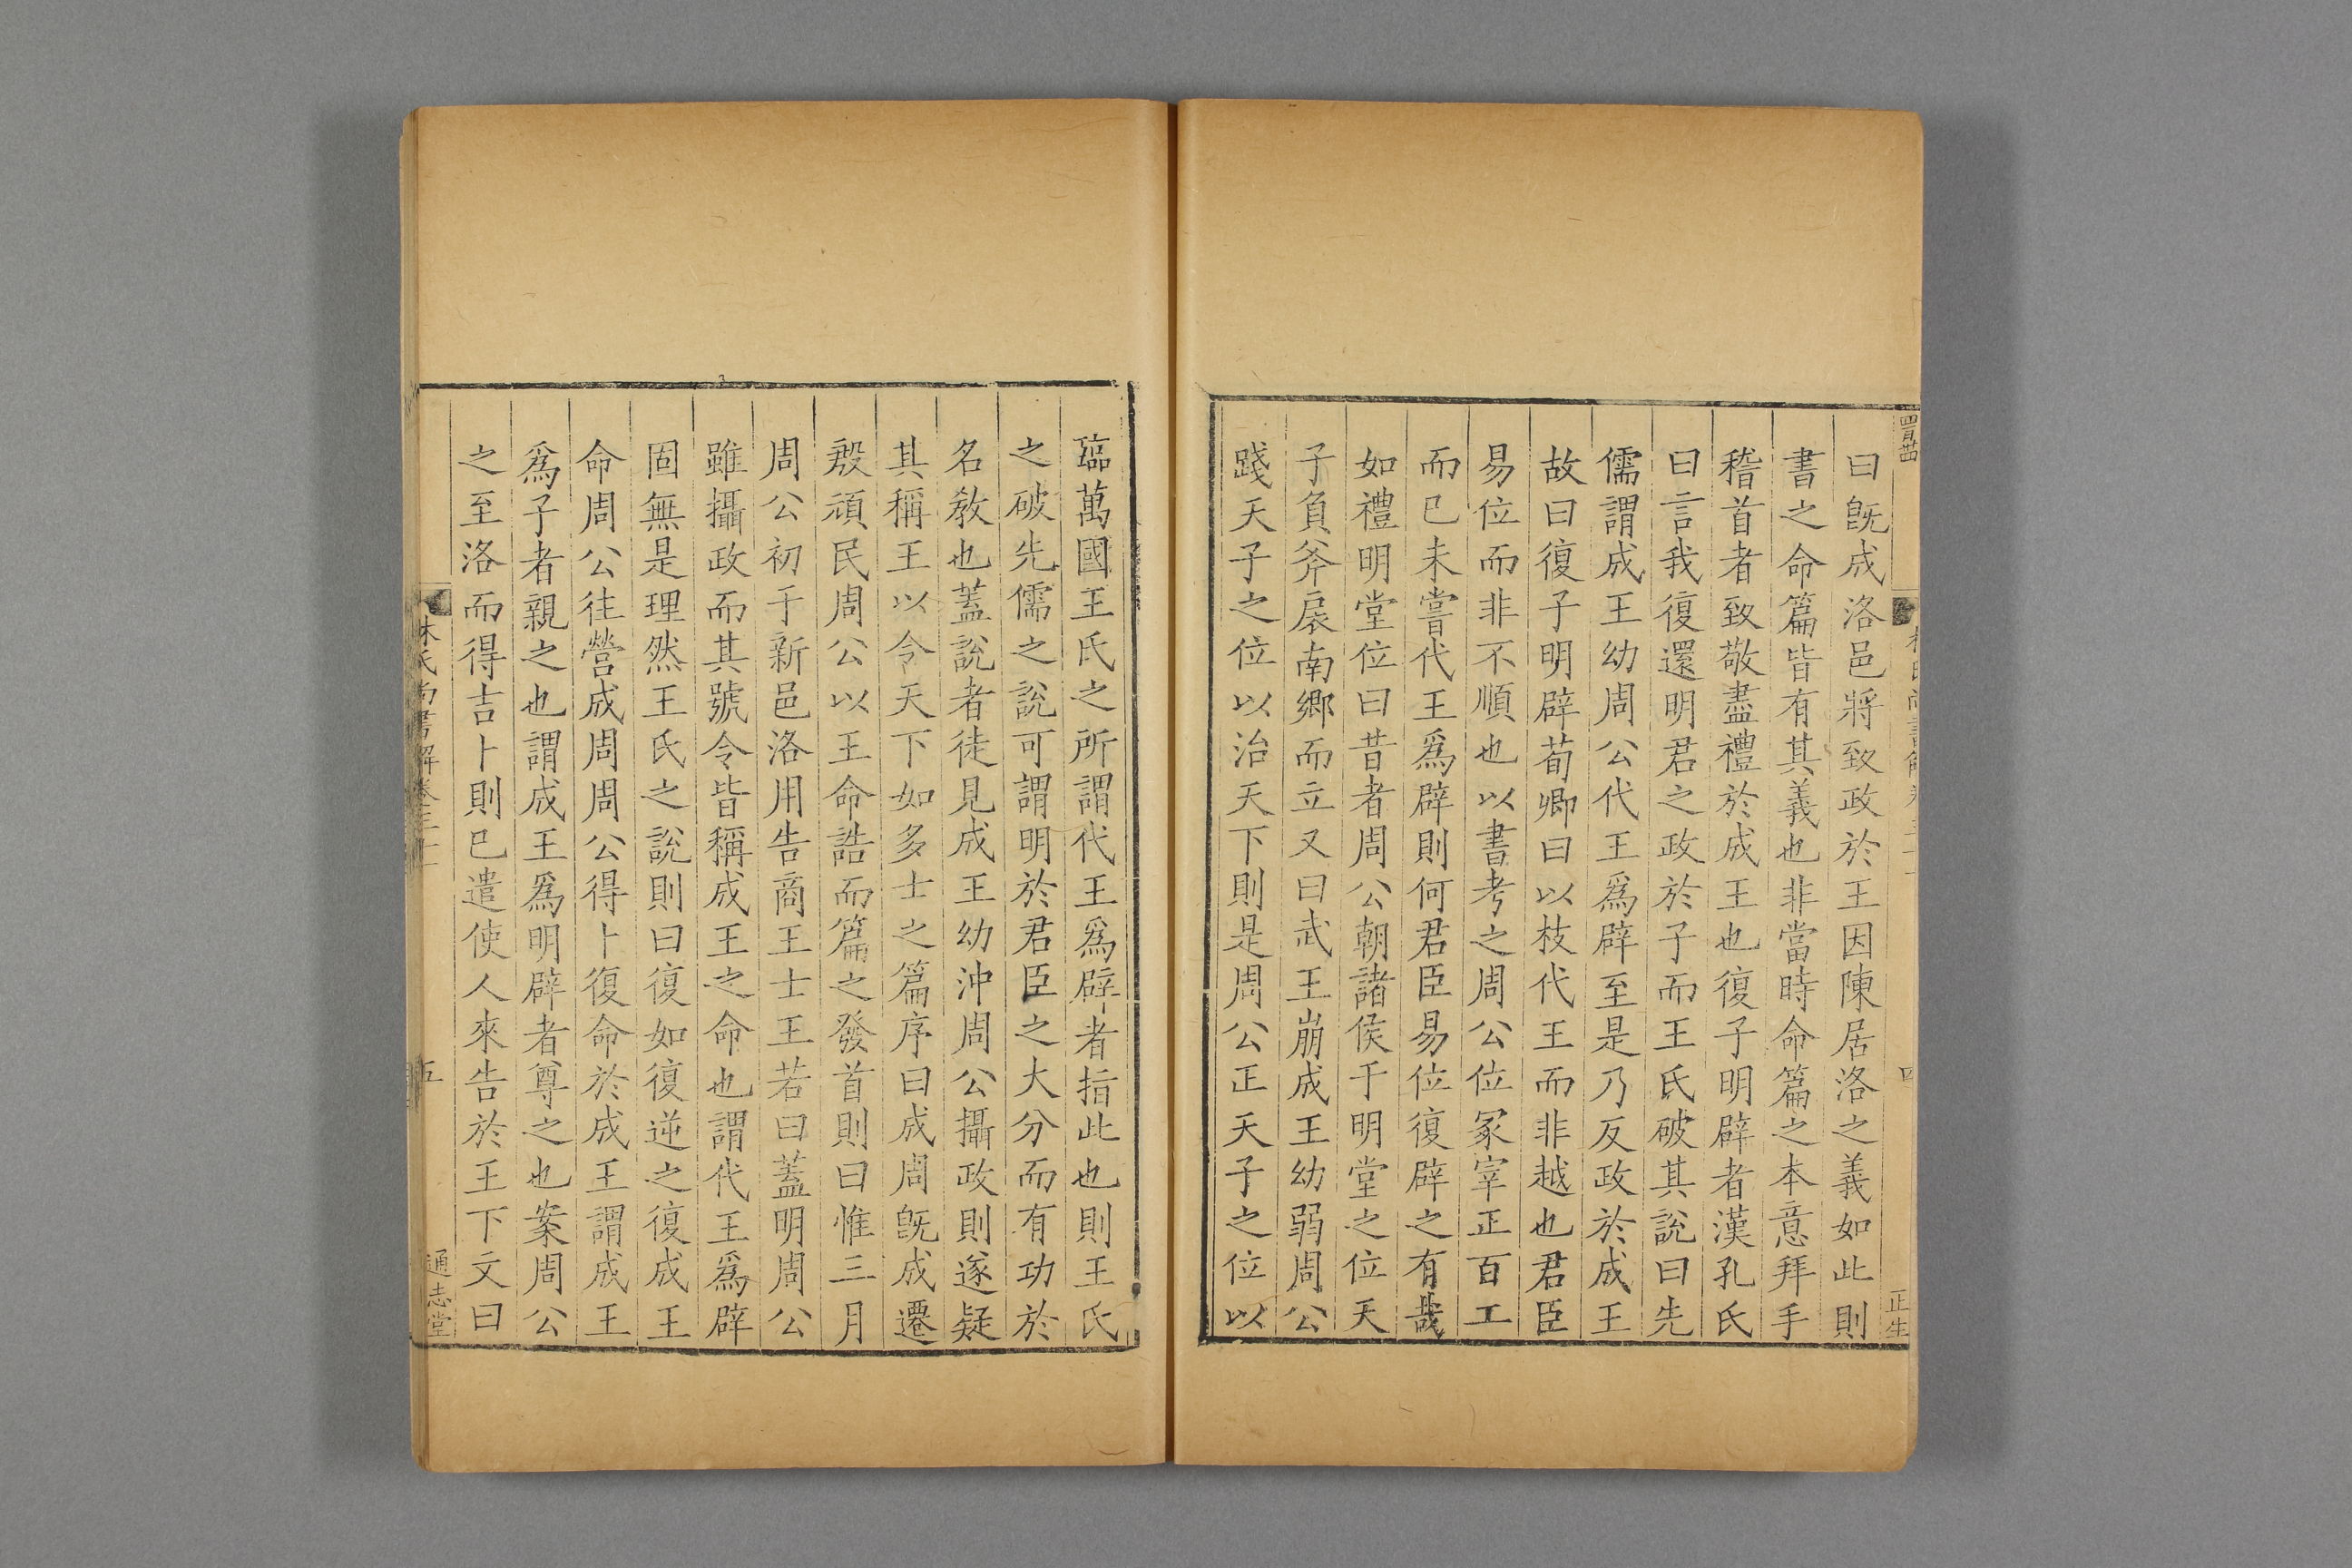 曰旣成洛邑將致政於王因陳居洛之義如此則
書之命篇皆有其義也非當時命篇之本意拜手
稽首者致敬盡禮於成王也復子明辟者漢孔氏
曰言我復還明君之政於子而王氏破其說曰先
儒謂成王幼周公代王爲辟至是乃反政於成王
故曰復子明辟荀卿曰以枝代王而非越也君臣
易位而非不順也以書考之周公位冢宰正百工
而已未嘗代王爲辟則何君臣易位復辟之有哉
如禮明堂位曰昔者周公朝諸侯于明堂之位天
子負斧扆南鄉而立又曰武王崩成王幼弱周公
踐天子之位以治天下則是周公正天子之位以
四
正生
臨萬國王氏之所謂代王爲辟者指此也則王氏
之破先儒之說可謂明於君臣之大分而有功於
名敎也蓋說者徒見成王幼沖周公攝政則遂疑
其稱王以令天下如多士之篇序曰成周旣成遷
殷頑民周公以王命誥而篇之發首則曰惟三月
周公初于新邑洛用告商王士王若曰蓋明周公
雖攝政而其號令皆稱成王之命也謂代王爲辟
固無是理然王氏之說則曰復如復逆之復成王
命周公往營成周周公得卜復命於成王謂成王
爲子者親之也謂成王爲明辟者尊之也案周公
之至洛而得吉卜則已遣使人來告於王下文曰
林氏尚書解卷三十
五
通志堂